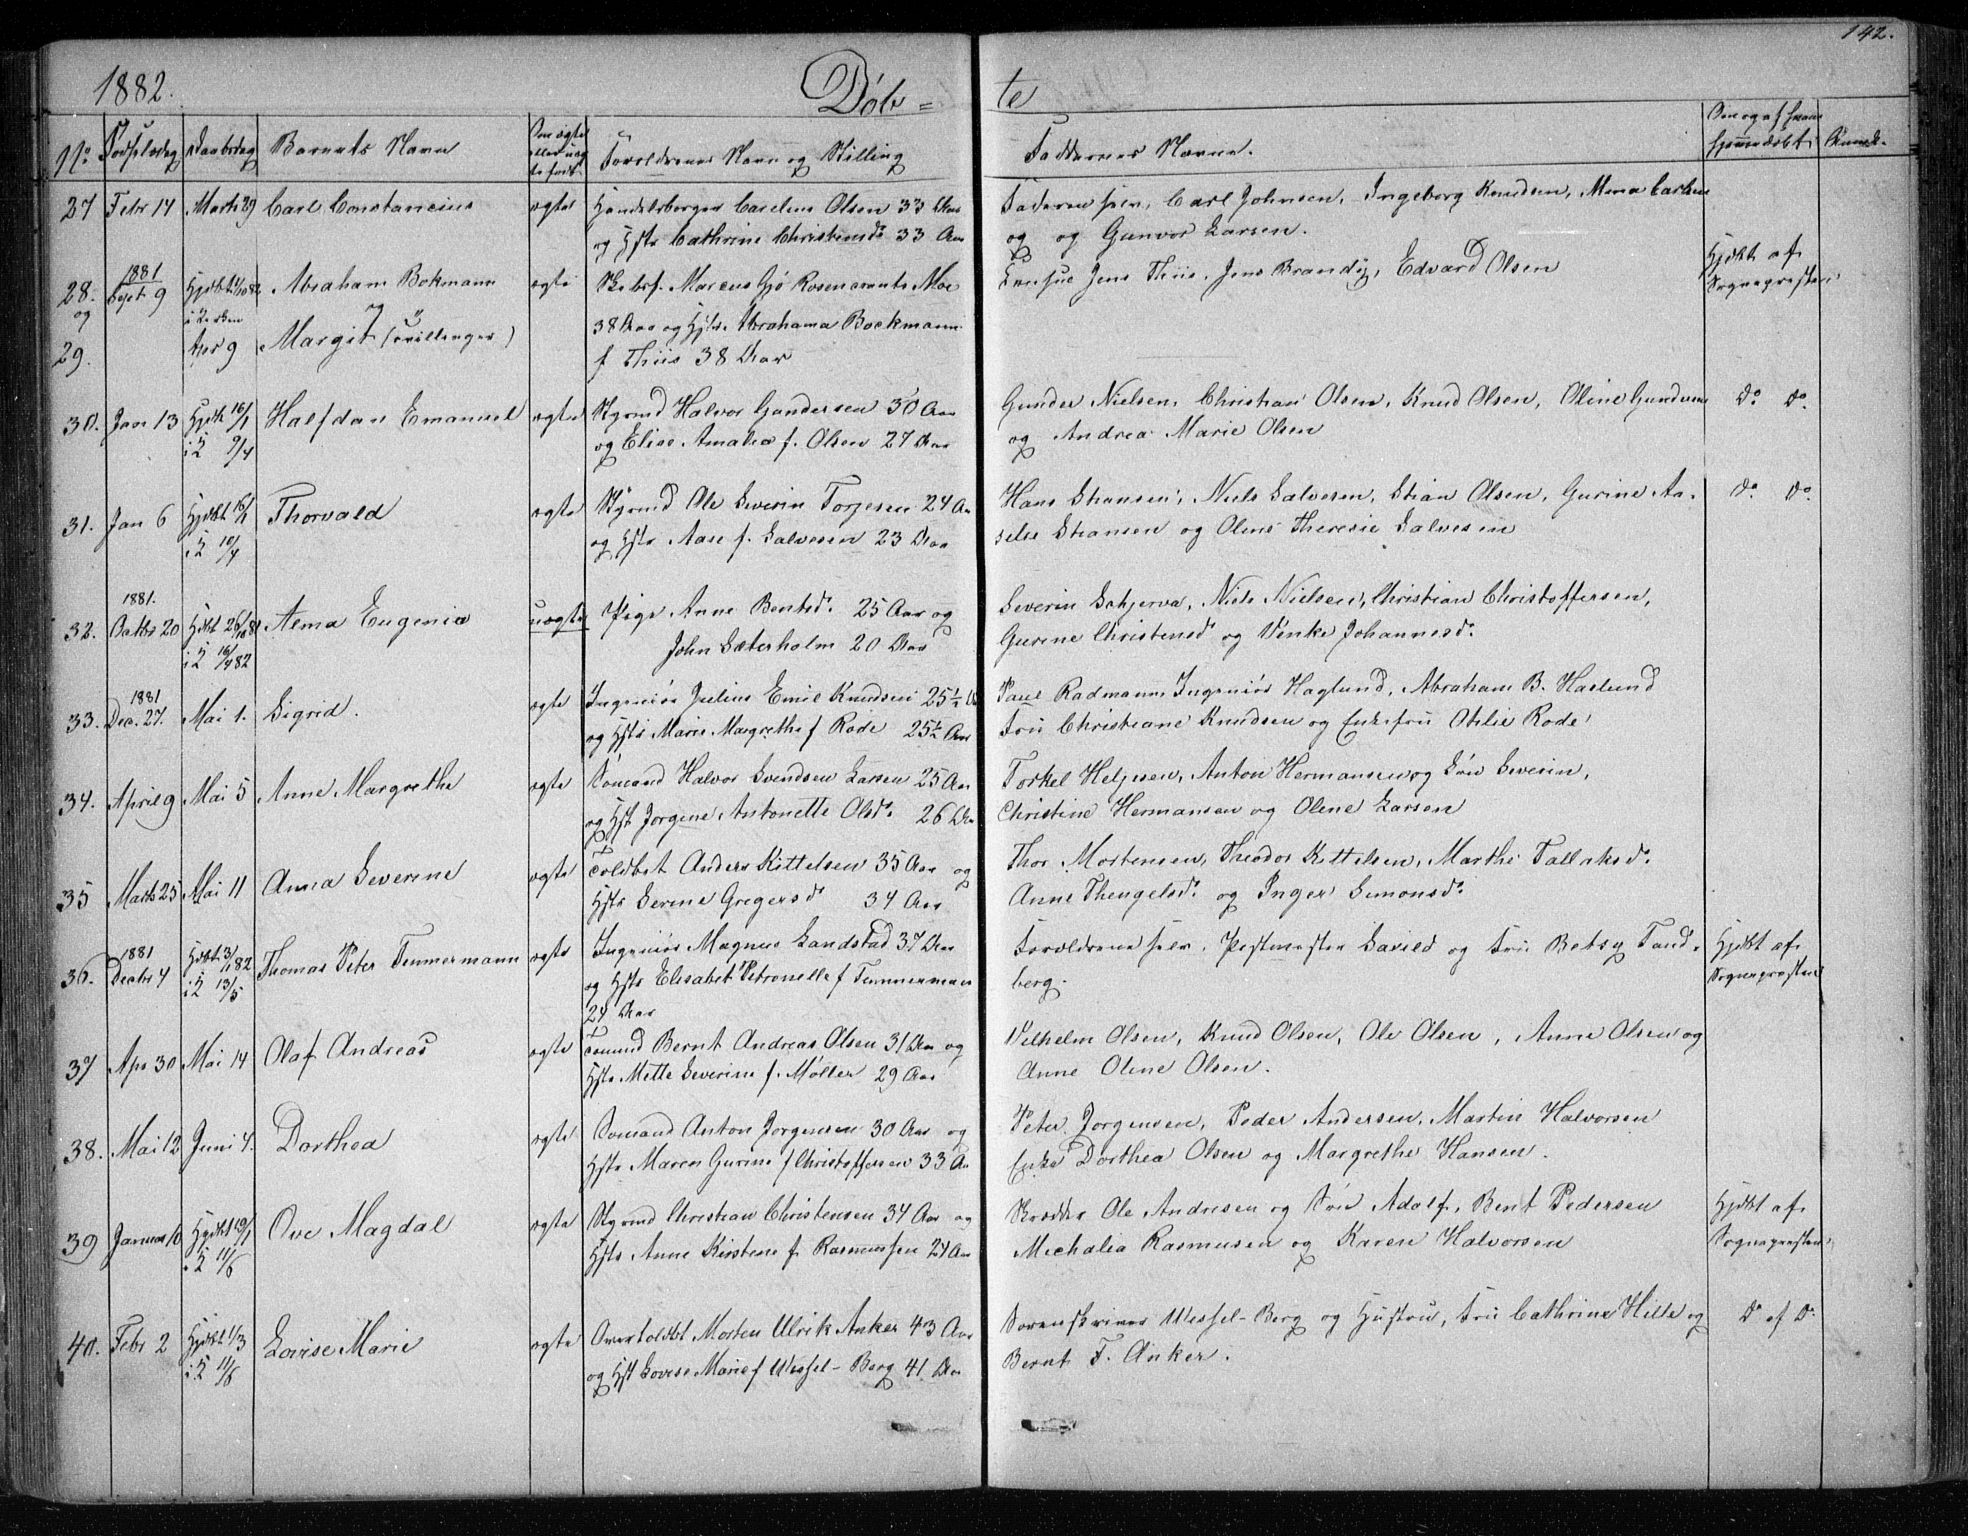 142.
1882. Døb= te
No Fødselsdag Daabsdag Barnets Navn Om ægte eller uæg te født Forældrenes Navn og Stilling Faddernes Navne. Om og af hvem hjemmedøbt Anmæk.
27 Febr 14 Marts 29 Carl Constancius ægte Handelsborger Carelius Olsen 33 Aar Faderen selv, Carl Johnsen, Ingeborg Knudsen, Mina Carlsen
og Hstr Cathrine Christensd. 33 Aar og og Gunvor Larsen.
28. 1881 Sept. 9 Abraham Bokmann ægte Skibsf. Marcus Gjø Rosencrants Moe Jens Thiis, Jens Brandt, Edvard Olsen Hjdbt af
og i Kirken og 38 Aar og Hstr. Abrahama Bockmann Sognepresten
29. Apr 9 Margit (Tvillinger) f Thiis 38 Aar
30. Jan 13 Hjdbt 16/1 Halfdan Emanuel ægte Styrmd Halvor Gundersen 30 Aar Gunder Nielsen, Christian Olsen, Knud Olsen, Oline Gundersen Do Do
i K 9/4 og Elise Amalia f. Olsen 27 Aar og Andrea Marie Olsen
31. Jan 6 Hjdbt 16/1 Thorvald ægte Styrmd Ole Severin Torjesen 24 Aar Hans Stiansen, Niels Salvesen, Stian Olsen, Gurine Aa-
i K 10/4 og Hstr Aase f. Salvesen 23 Aar selie Stiansen og Oline Theresie Salvesen Do Do
32. 1881. Octbr 20 Hjdbt Alma Eugenia uægte Pige Anne Bentsd. 25 Aar og Severin Schjerva, Niels Nielsen, Christian Christoffersen,
i K 16/4 82 John Sæterholm 20 Aar Gurine Christensd og Venke Johannesd.
33. 1881 Dec. 27. Mai 1. Sigrid. ægte Ingeniør Julius Emil Knudsen 25½ Paul Radmann Ingeniør Haglund, Abraham B. Haslund
og Hstr Marie Margrethe f Rode 25½ Aar Fru Christiane Knudsen og Enkefru Othilie Rode
34. April 9 Mai 5 Anne Margrethe ægte Sømand Halvor Svendsen Larsen 25 Aar Torkel Heljesen, Anton Hermansen og Søn Severin,
og Hst Jørgine Antonette Olsd. 26 Aar Christine Hermansen og Oline Larsen
35 Marts 25 Mai 11 Anna Severine ægte Toldbet Anders Kittelsen 35 Aar og Thor Mortensen, Theodor Kittelsen, Marthe Tallaksd.
Hstr Serine Gregersd 34 Aar Anne Thengelsd. og Inger Simonsd.
36. 1881 Decbr 4 Hjdbt 3/1 82 Thomas Peter Timmermann ægte Ingeniør Magnus Landstad 37 Aar Forældrene selv, Postmester Saxild og Fru Betsy Tand- Hjdbt af
i K 13/5 og Hstr Elisabet Petronelle f Timmermann berg. Sognepresten
24 Aar
37 Apr 30 Mai 14 Olaf Andreas ægte Sømand Bernt Andreas Olsen 31 Aar og Vilhelm Olsen, Knud Olsen, Ole Olsen, Anne Olsen og
Hstr Mette Severine f. Møller 29 Aar Anne Oline Olsen.
38. Mai 12 Juni 4. Dorthea ægte Sømand Anton Jørgensen 30 Aar og Peter Jørgensen, Peder Andersen, Martin Halvorsen
Hstr Maren Gurine f Christoffersen 33 Aar Enke Dorthea Olsen og Margrethe Hansen.
39 Januar 10 Hjdbt 29/1 Ove Magdal ægte Styrmd Christian Christensen 34 Aar og Skrædder Ole Andresen og Søn Adolf, Bent Pedersen Hjdbt af
i K 11/6 Hstr Anne Kirstine f. Rasmussen 24 Aar Michalia Rasmusen og Karen Halvorsen Sognepresten
40. Febr 2 Hjdbt 1/3 Lovise Marie ægte Overtoldbt Morten Ulrik Anker 43 Aar Sorenskriver Wessel-Berg og Hustru, Fru Cathrine Hille og Do af Do
i K 11/6 og Hst Lovise Marie f Wessel-Berg 41 Aar Bernt F. Anker.